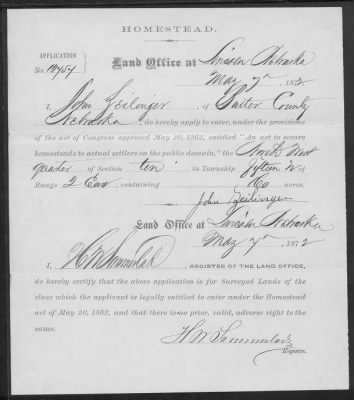 HOMESTEAD.
APPLICATION
No. 10454
Land Office at Lincoln Nebraska
May 7th 1872
I, John Zeilinger, of Butler County
Nebraska do hereby apply to enter, under the provisions
of the act of Congress approved May 20, 1862, entitled "An act to secure
homesteads to actual settlers on the public domain," the North West
quarter of Section ten in Township fifteen N of
Range 2 East containing 160 acres.
John Zeilinger
Land Office at Lincoln Nebraska
May 7th 1872
I, H W Sommerlad, REGISTER OF THE LAND OFFICE,
do hereby certify that the above application is for Surveyed Lands of the
class which the applicant is legally entitled to enter under the Homestead
act of May 20, 1862, and that there is no prior, valid, adverse right to the
same.
H. W. Sommerlad
Register.